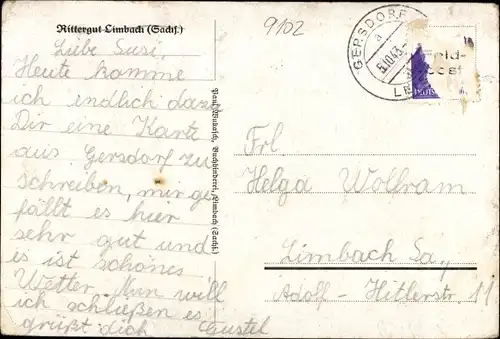 Rittergut Limbach (Sachs.)
9102
Liebe Susi,
Heute komme
ich endlich dazu
Dir eine Karte
aus Gersdorf zu
schreiben, mir ge-
fällt es hier
sehr gut und
es ist schönes
Wetter. Nun will
ich schließen es
grüßt dich Gustel
Buchbinderei, Limbach (Sachs.)
GERSDORF
a
5.10.43
Frl
Helga Wolfram
Limbach Sa,
Adolf-Hitlerstr. 11